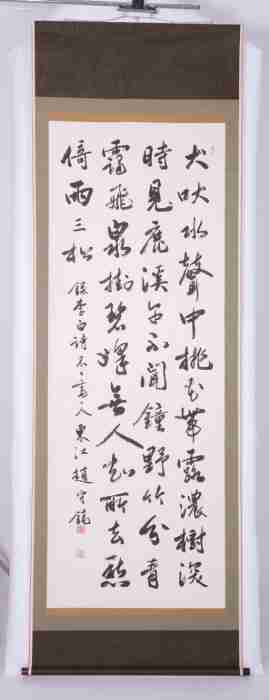 犬吠水聲中桃花帶露濃樹深
時見鹿溪午不聞鐘野竹分青
靄飛泉掛碧峰無人知所去愁
倚兩三松 錄李白詩 書人 東江 趙守鎬